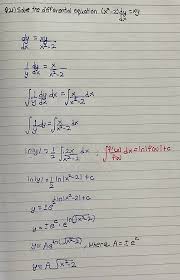 Q(ii) Solve the differential equation (x²-2)dy/dx = xy
dy/dx = xy/x²-2
1/y dy/dx = x/x²-2
∫1/y dy/dx dx = ∫x/x²-2 dx
∫1/y dy = ∫x/x²-2 dx
ln|y| = 1/2 ∫2x/x²-2 dx ; ∫f'(x)/f(x) dx = ln|f(x)| + c
ln|y| = 1/2 ln|x²-2| + c
y = ± e^(1/2 ln|x²-2| + c)
y = ± e^c · e^(ln√(x²-2))
y = Ae^(ln√(x²-2)), where A = ± e^c
y = A√x²-2